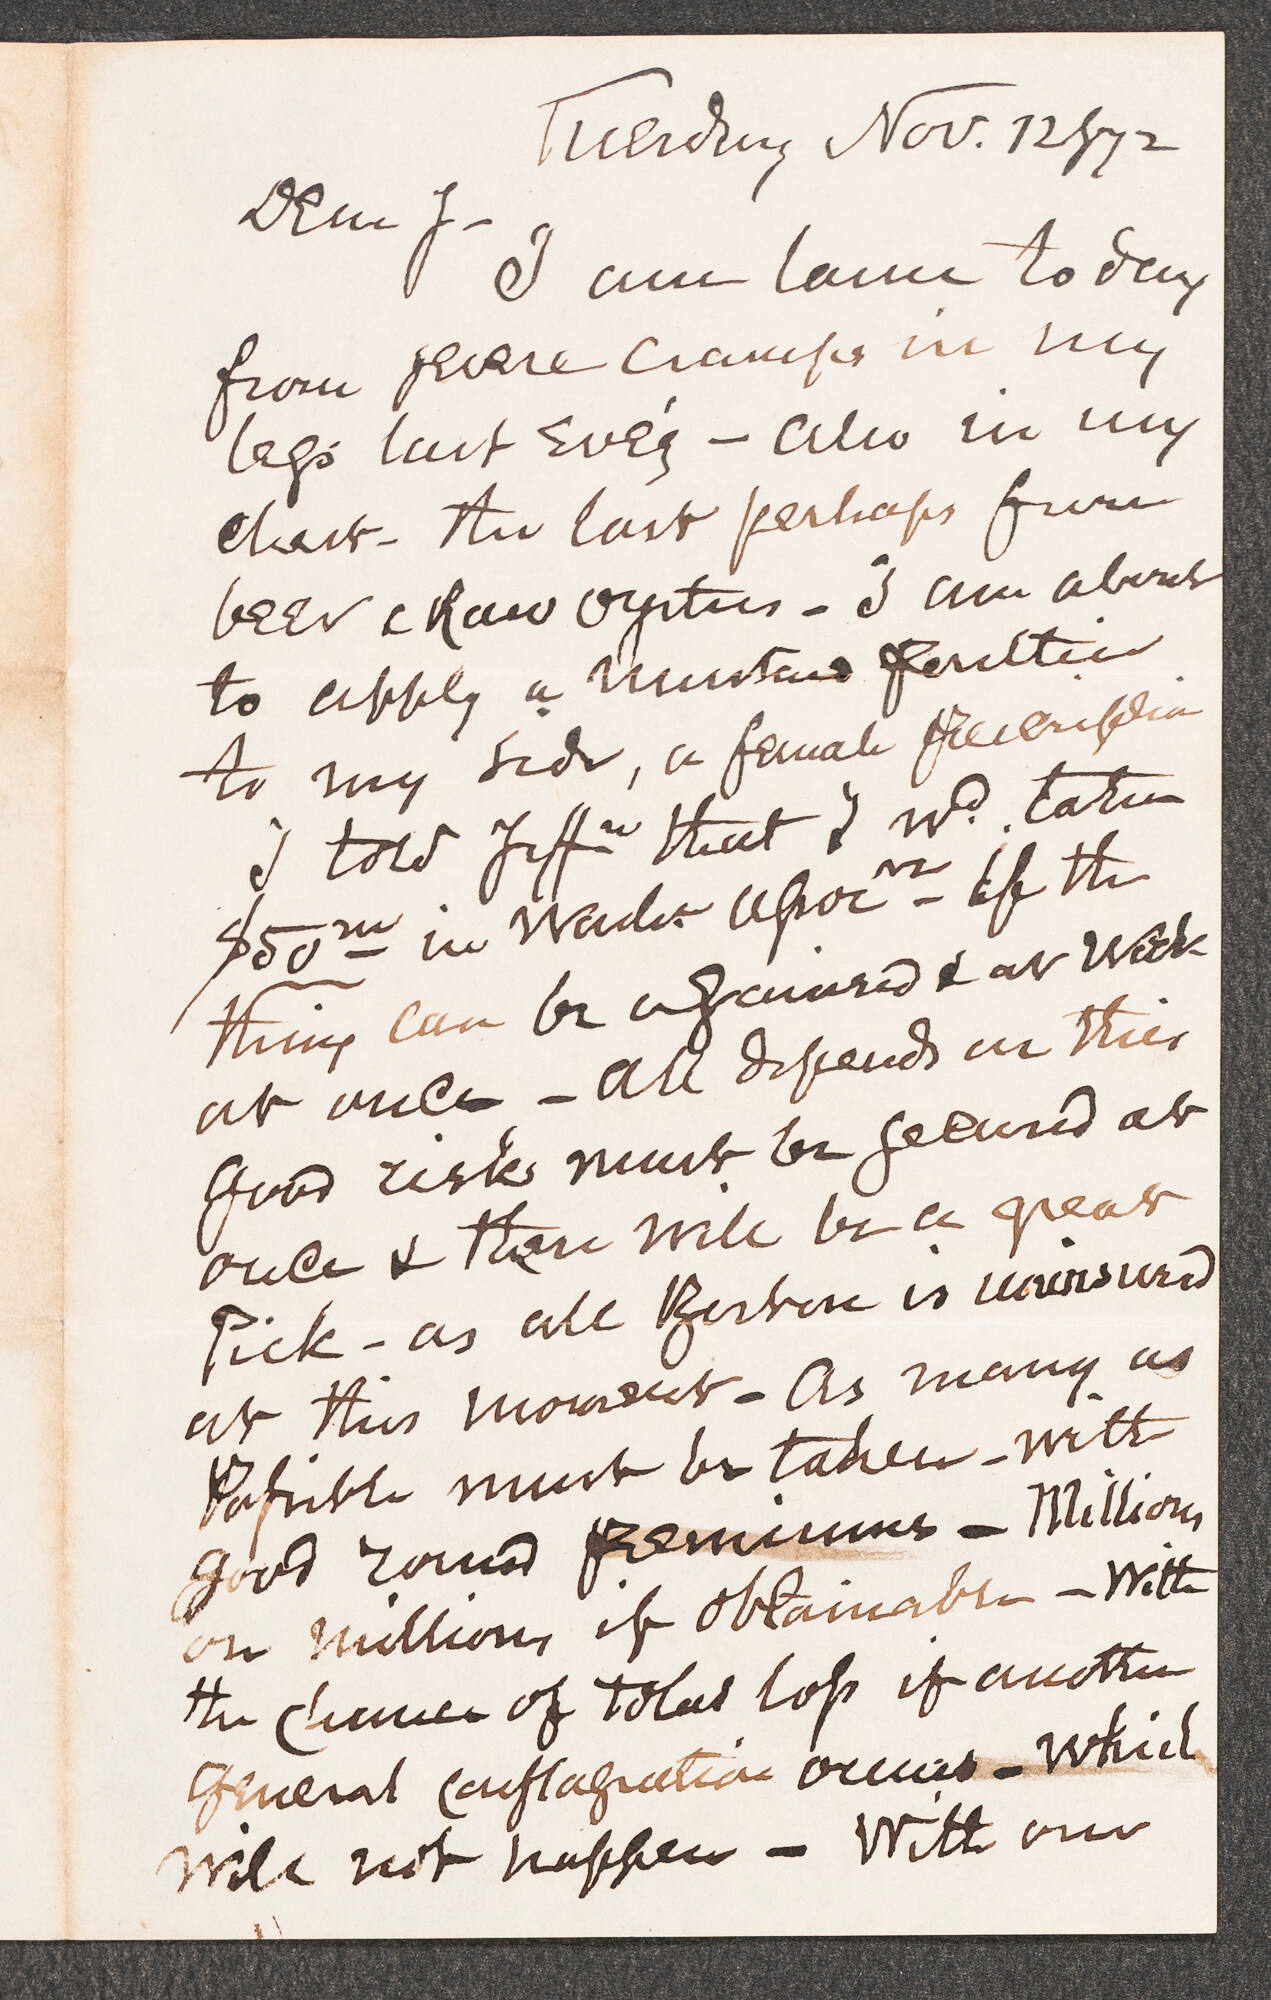 Tuesday Nov. 12/72
Dear J-
I am lame to day
from severe cramps in my
legs last Eve'g - also in my
chest - the last perhaps from
beer & Raw oysters - I am about
to apply a mustard poultice
to my side, a female prescription
I told Jeffn that I wd. take
$50m in Wash Assocn - if the
thing can be organized & at work
at once - All depends on this
Good risks must be secured at
once & there will be a great
Pick - as all Boston is uninsured
at this moment - As many as
Possible must be taken - with
good round Premiums - Millions
on millions if obtainable - With
the chance of total loss if another
General conflagration occurs - which
will not happen - With our